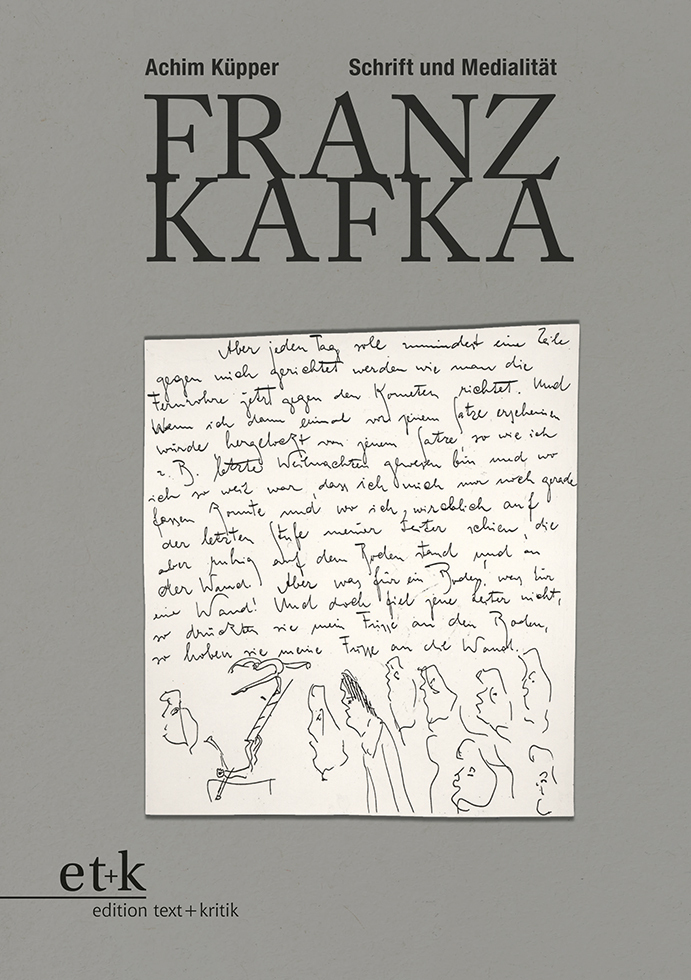 Achim Küpper Schrift und Medialität
FRANZ
KAFKA
Aber jeden Tag soll zumindest eine Zeile
gegen mich gerichtet werden wie man die
Fernrohre jetzt gegen den Kometen richtet. Und
Wenn ich dann einmal vor jenem Satze erscheinen
würde hergelockt von jenem Satze, so wie ich
z. B. letzte Weihnachten gewesen bin und wo
ich so weit war, dass ich mich nur noch gerade
fassen konnte und wo ich wirklich auf
der letzten Stufe meiner Leiter schien, die
aber ruhig auf dem Boden stand und an
der Wand. Aber was für ein Boden, was für
eine Wand! Und doch fiel jene Leiter nicht,
so drückten sie mein Füsse an den Boden,
so hoben sie meine Füsse an die Wand.
et+k
edition text+kritik